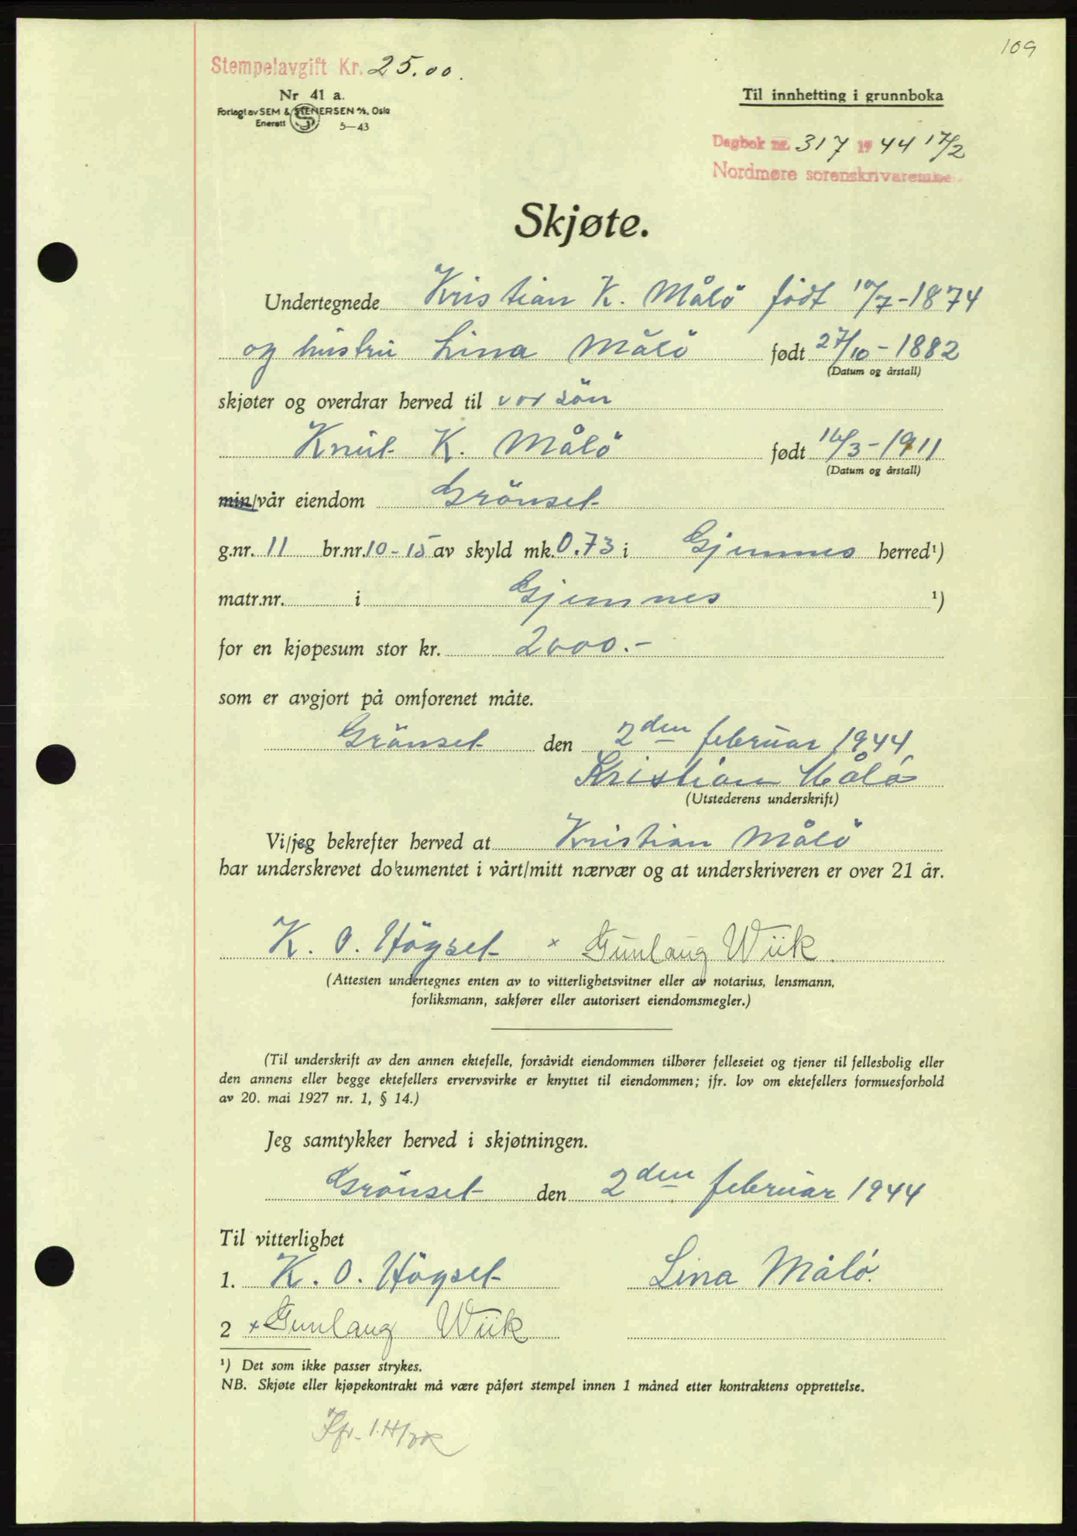 109
Stempelavgift Kr. 25.00.
Nr 41 a.
Forlagt av SEM & STENERSEN A/S, Oslo
Enerett 5—43
Til innhefting i grunnboka
Dagbok nr. 317 19 44 17/2
Nordmøre sorenskrivarembe
Skjøte.
Undertegnede Kristian K. Målö født 17/7-1874
og hustru Lina Målö født 27/10-1882
(Datum og årstall)
skjøter og overdrar herved til vor sön
Knut K. Målö født 16/3-1911
(Datum og årstall)
min/vår eiendom Grönset
g.nr. 11 br.nr. 10-15 av skyld mk. 0.73 i Gjemnes herred¹)
matr.nr. i Gjemnes ¹)
for en kjøpesum stor kr. 2000.-
som er avgjort på omforenet måte.
Grönset den 2den februar 1944
Kristian Målö
(Utstederens underskrift)
Vi/jeg bekrefter herved at Kristian Målö
har underskrevet dokumentet i vårt/mitt nærvær og at underskriveren er over 21 år.
K. O. Högset × Gunlaug Wiik.
(Attesten undertegnes enten av to vitterlighetsvitner eller av notarius, lensmann,
forliksmann, sakfører eller autorisert eiendomsmegler.)
(Til underskrift av den annen ektefelle, forsåvidt eiendommen tilhører felleseiet og tjener til fellesbolig eller
den annens eller begge ektefellers ervervsvirke er knyttet til eiendommen; jfr. lov om ektefellers formuesforhold
av 20. mai 1927 nr. 1, § 14.)
Jeg samtykker herved i skjøtningen.
Grönset den 2den februar 1944
Til vitterlighet
1. K. O. Högset Lina Målö.
2 × Gunlaug Wiik
¹) Det som ikke passer strykes.
NB. Skjøte eller kjøpekontrakt må være påført stempel innen 1 måned etter kontraktens opprettelse.